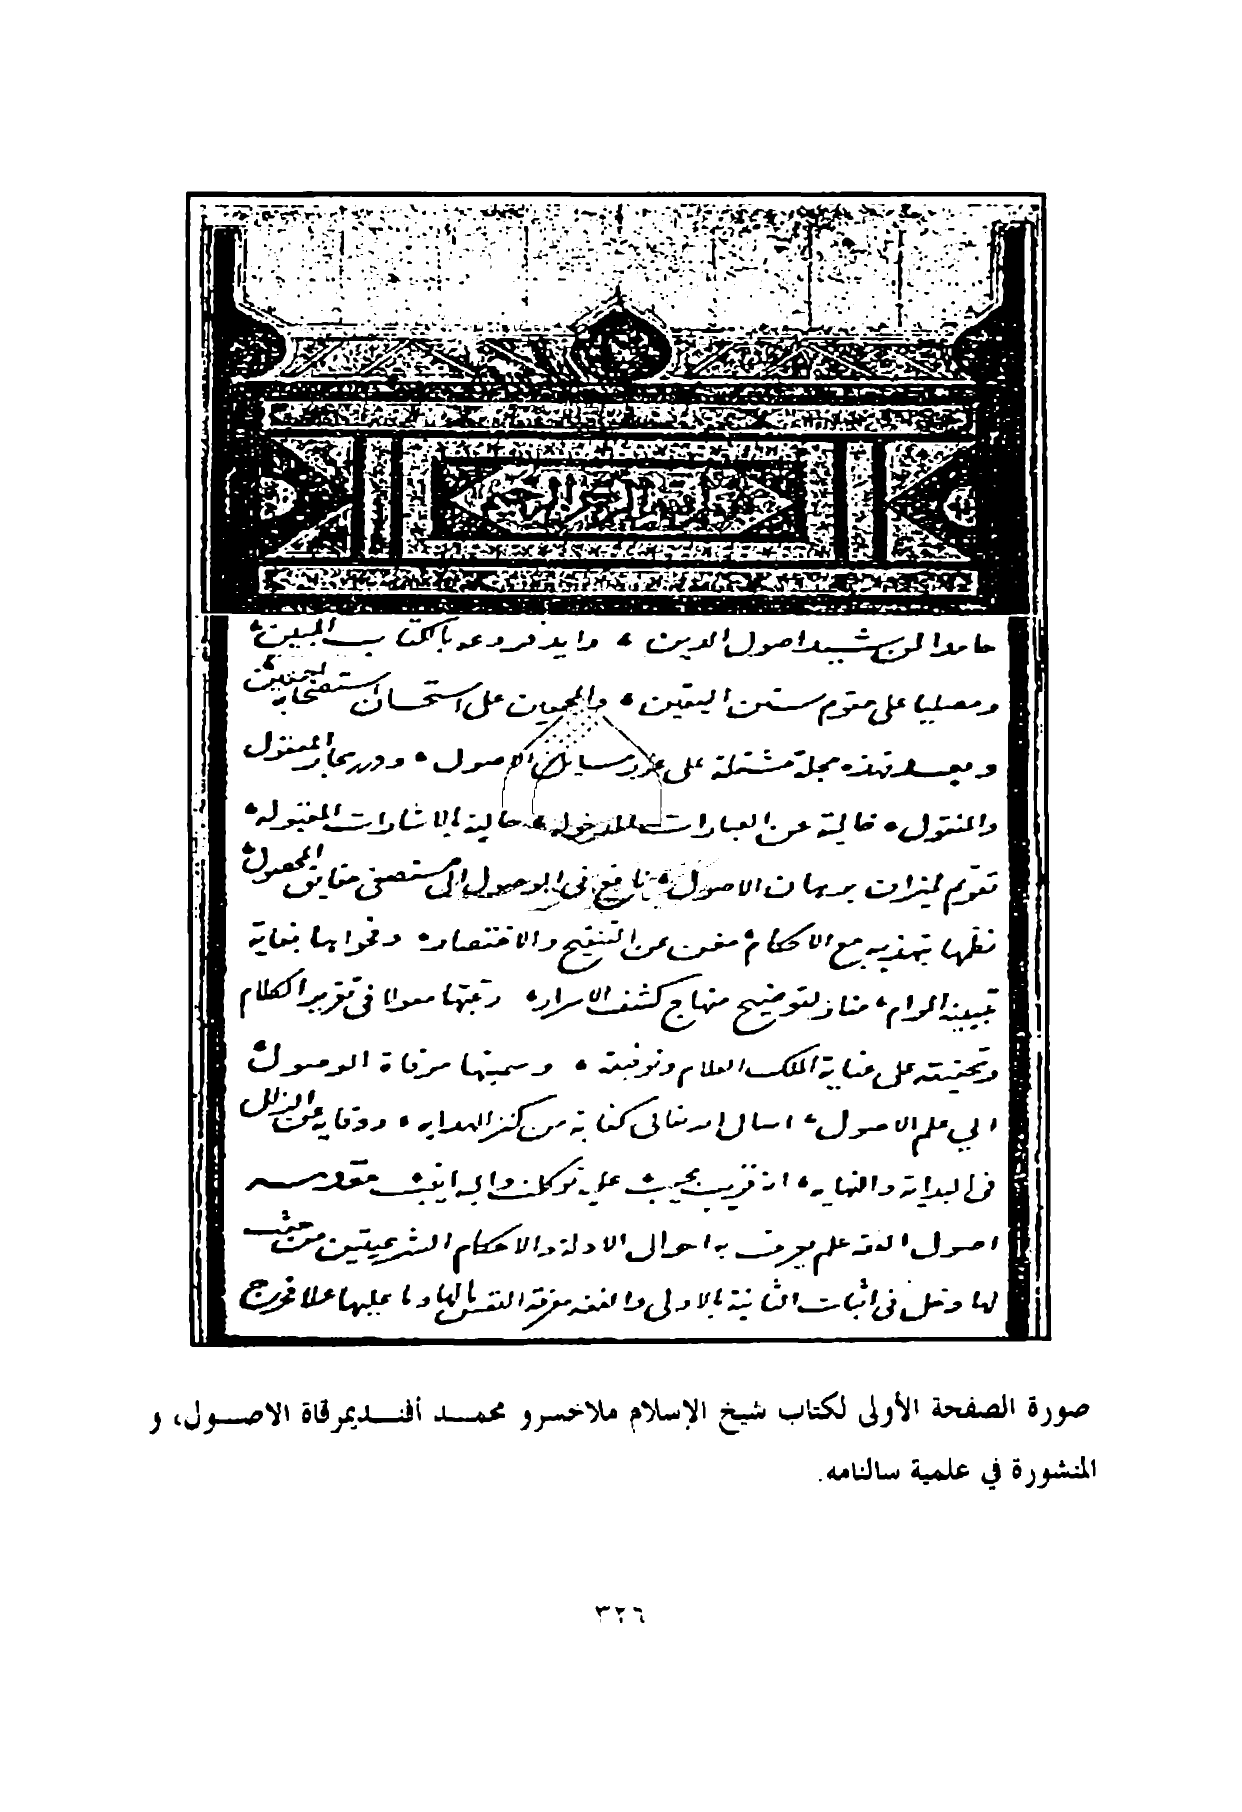 بسم الله الرحمن الرحيم
حامدا لمن شيد اصول الدين وايد فروعه بالكتاب المبين
ومصليا على مقوم سنن اليقين على استحسان استصحابه
وبعد فهذه مجلة مشتملة على غرر مسائل الاصول ودرر بحار المعقول
والمنقول خالية عن العبارات المدخولة حالية بالاشارات المقبولة
تقويم لميزان برهان الاصول نافع في الوصول الى مستصفى حقايق المحصول
نظمها بتهذيبه مع الاحكام مغن عن التنقيح والاختصار وفحوايها بغاية
تبيينه المرام منار لتوضيح منهاج كشف الاسرار رتبتها معولا في تقرير الكلام
وتحقيقه على عناية الملك العلام وتوفيقه وسميتها مرقاة الوصول
الى علم الاصول اسال الله تعالى كفاية من كنز الهداية ووقاية عن الزلل
في البداية والنهاية انه قريب مجيب عليه توكلت واليه انيب مقدمة
اصول الفقه علم يعرف به احوال الادلة والاحكام الشرعيتين من حيث
لها دخل في اثبات الثانية بالاولى والفقه معرفة النفس مالها وما عليها عملا فخرج
صورة الصفحة الأولى لكتاب شيخ الإسلام ملاخسرو محمد أفنديمرقاة الاصول، و
المنشورة في علمية سالنامه.
٣٢٦